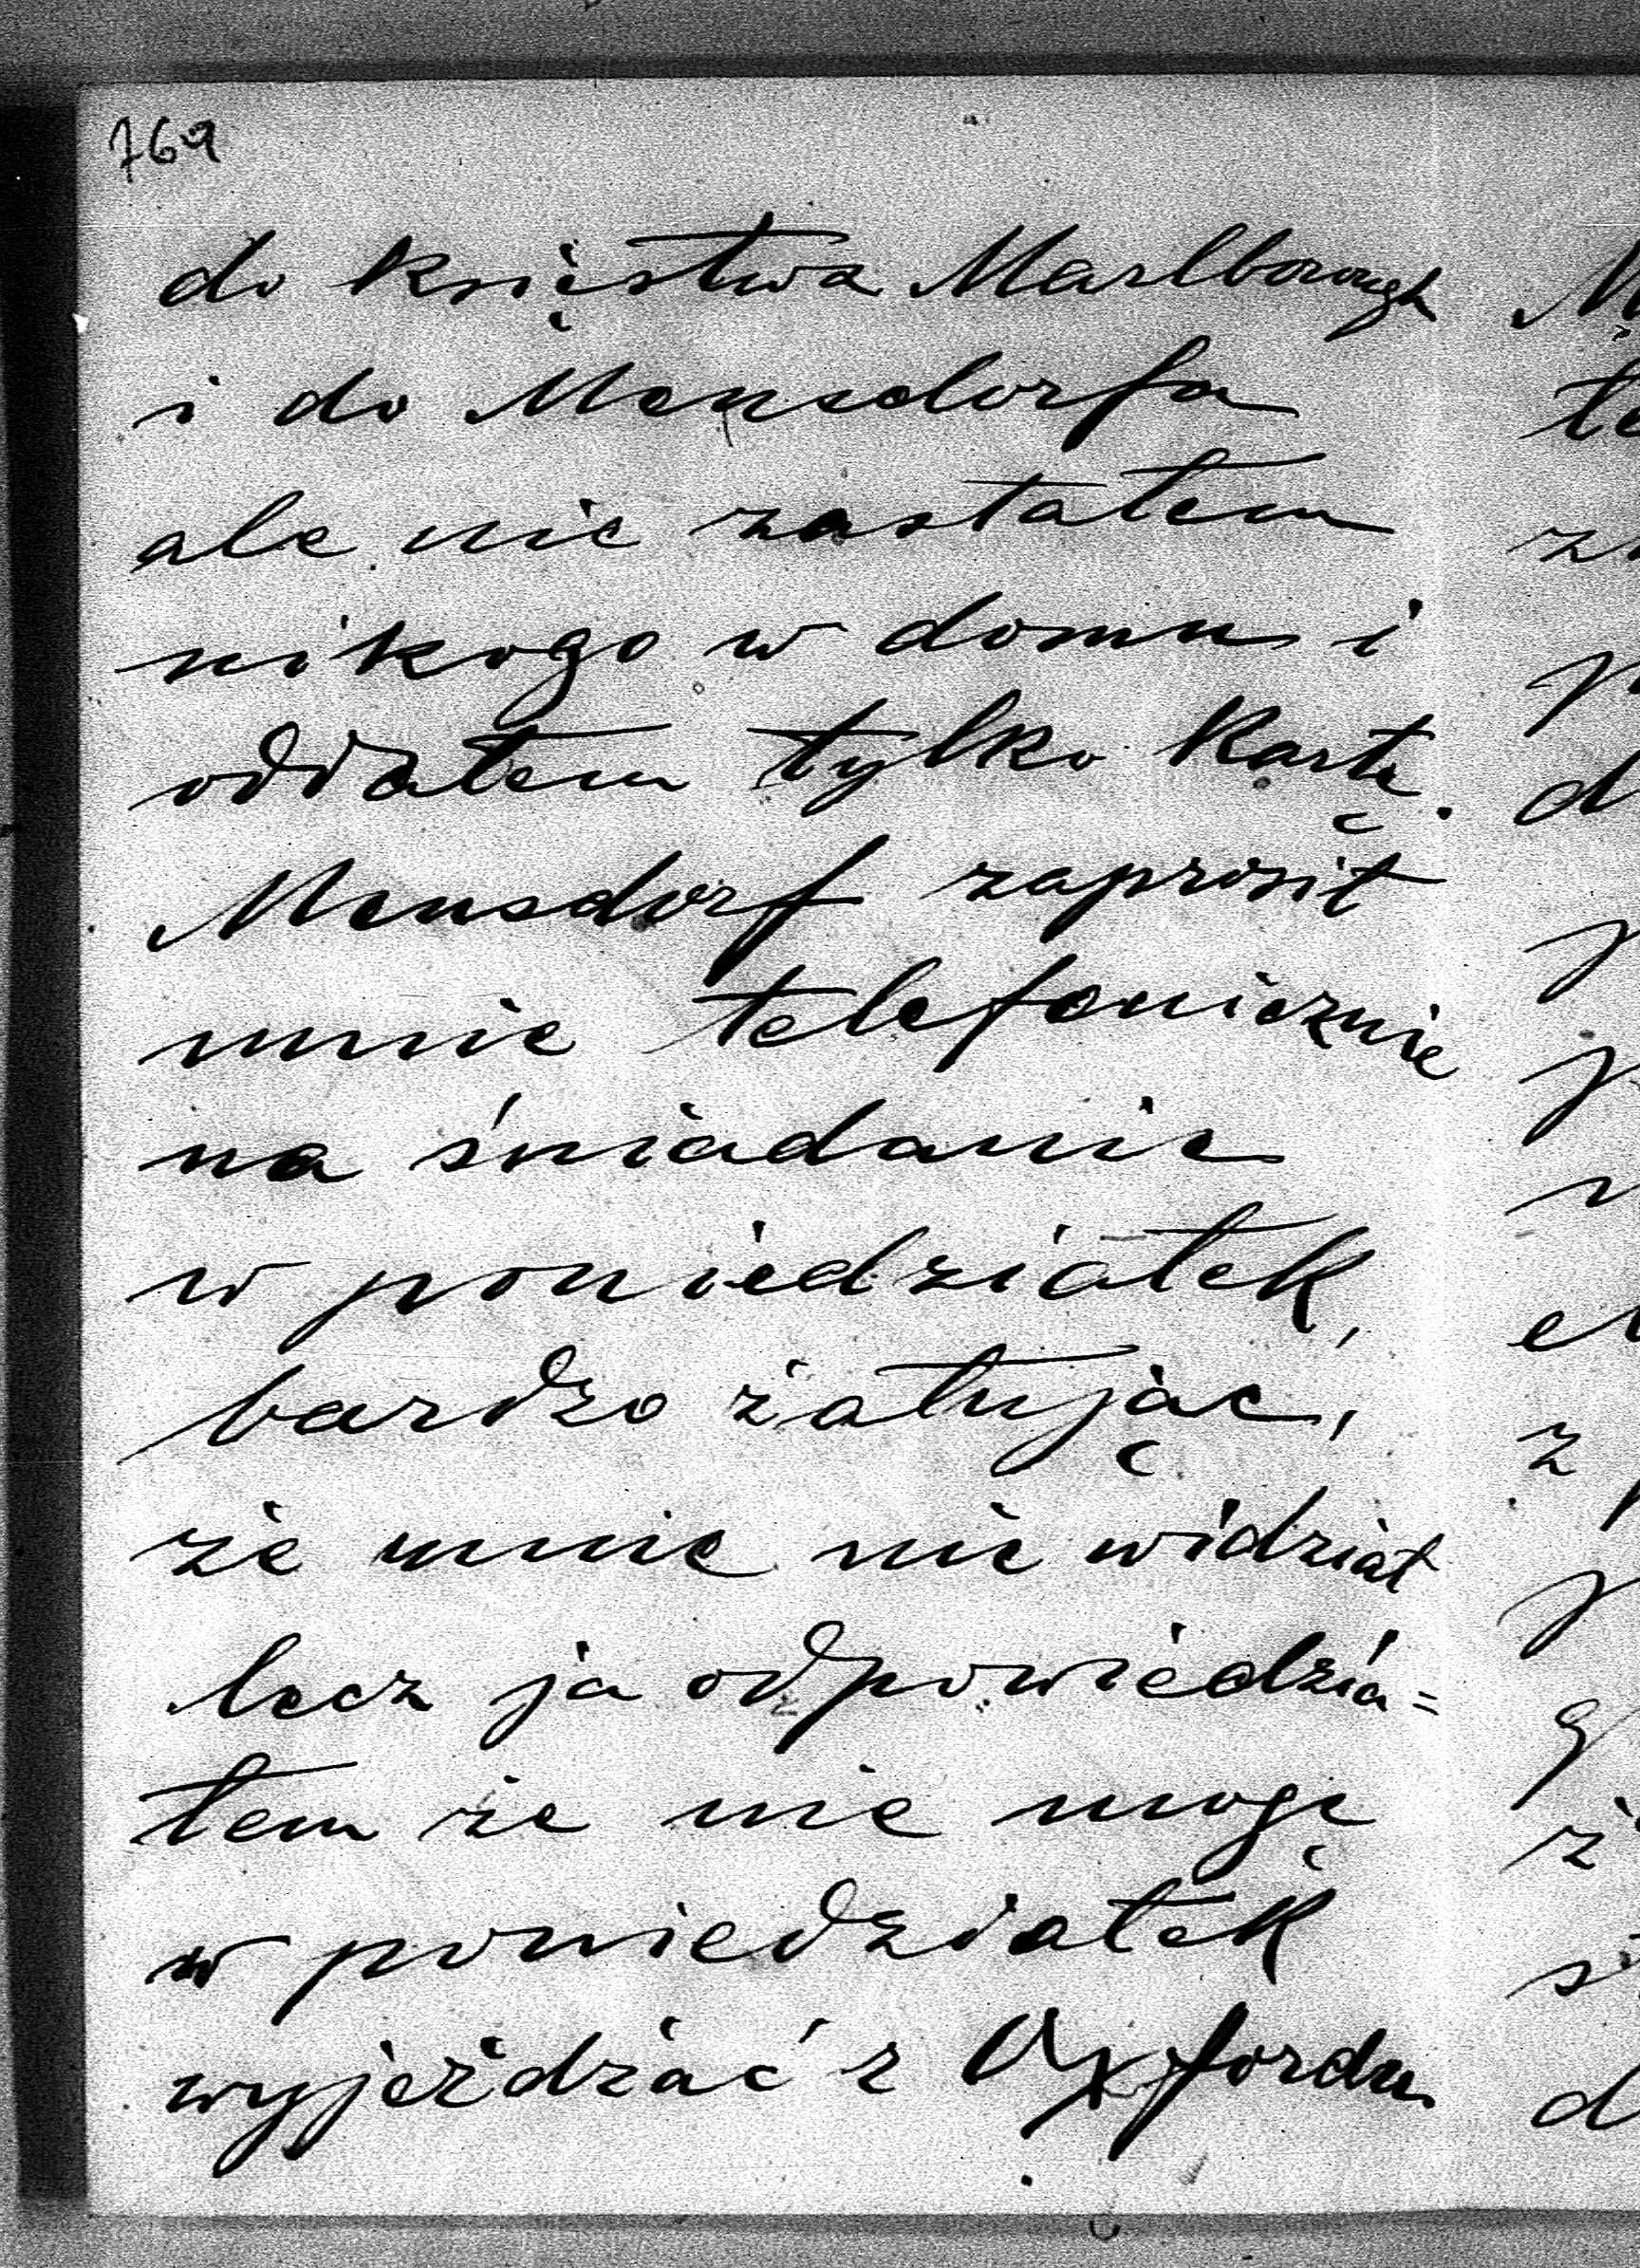 769
do księstwa Marlborough
i do Mensdorfa
ale nie zastałem
nikogo w domu i
oddałem tylko Kartę.
Mensdorf zaprosił
mnie telefonicznie
na śniadanie
w poniedziałek,
bardzo żałując,
że mnie nie widział
lecz ja odpowiedzia=
łem że nie mogę
w poniedziałek
wyjeżdżać z Oxfordu